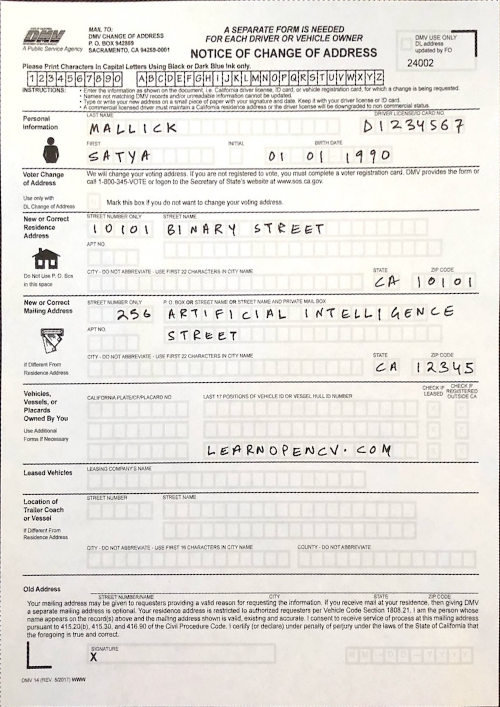 DMV
A Public Service Agency
MAIL TO:
DMV CHANGE OF ADDRESS
P. O. BOX 942859
SACRAMENTO, CA 94269-0001
A SEPARATE FORM IS NEEDED
FOR EACH DRIVER OR VEHICLE OWNER
NOTICE OF CHANGE OF ADDRESS
DMV USE ONLY
DL address
updated by FO
24002
Please Print Characters In Capital Letters Using Black or Dark Blue Ink only.
1234567890 ABCDEFGHIJKLMNOPQRSTUVWXYZ
INSTRUCTIONS:
• Enter the information as shown on the document, i.e. California driver license, ID card, or vehicle registration card, for which a change is being requested.
• Names not matching DMV records and/or unreadable information cannot be updated.
• Type or write your new address on a small piece of paper with your signature and date. Keep it with your driver license or ID card.
• A commercial licensed driver must maintain a California residence address or the driver license will be downgraded to non commercial status.
Personal
Information
LAST NAME
DRIVER LICENSE/ID CARD NO
MALLICK D1234567
FIRST INITIAL BIRTH DATE
SATYA 01 01 1990
Voter Change
of Address
We will change your voting address. If you are not registered to vote, you must complete a voter registration card. DMV provides the form or
call 1-800-345-VOTE or logon to the Secretary of State's website at www.sos.ca.gov.
Use only with
DL Change of Address
Mark this box if you do not want to change your voting address.
New or Correct
Residence
Address
STREET NUMBER ONLY STREET NAME
10101 BINARY STREET
APT NO.
Do Not Use P. O. Box
in this space
CITY - DO NOT ABBREVIATE - USE FIRST 22 CHARACTERS IN CITY NAME STATE ZIP CODE
CA 10101
New or Correct
Mailing Address
STREET NUMBER ONLY P. O. BOX OR STREET NAME OR STREET NAME AND PRIVATE MAIL BOX
256 ARTIFICIAL INTELLIGENCE
APT NO.
STREET
If Different From
Residence Address
CITY - DO NOT ABBREVIATE - USE FIRST 22 CHARACTERS IN CITY NAME STATE ZIP CODE
CA 12345
Vehicles,
Vessels, or
Placards
Owned By You
Use Additional
Forms If Necessary
CALIFORNIA PLATE/CF/PLACARD NO. LAST 17 POSITIONS OF VEHICLE ID OR VESSEL HULL ID NUMBER
CHECK IF
LEASED
CHECK IF
REGISTERED
OUTSIDE CA
LEARNOPENCV.COM
Leased Vehicles
LEASING COMPANY'S NAME
Location of
Trailer Coach
or Vessel
If Different From
Residence Address
STREET NUMBER STREET NAME
CITY - DO NOT ABBREVIATE - USE FIRST 16 CHARACTERS IN CITY NAME COUNTY - DO NOT ABBREVIATE
Old Address
STREET NUMBER/NAME CITY STATE ZIP CODE
Your mailing address may be given to requesters providing a valid reason for requesting the information. If you receive mail at your residence, then giving DMV
a separate mailing address is optional. Your residence address is restricted to authorized requesters per Vehicle Code Section 1808.21. I am the person whose
name appears on the record(s) above and the mailing address shown is valid, existing and accurate. I consent to receive service of process at this mailing address
pursuant to 415.20(b), 415.30, and 416.90 of the Civil Procedure Code. I certify (or declare) under penalty of perjury under the laws of the State of California that
the foregoing is true and correct.
SIGNATURE
X
DMV 14 (REV. 5/2017) WWW